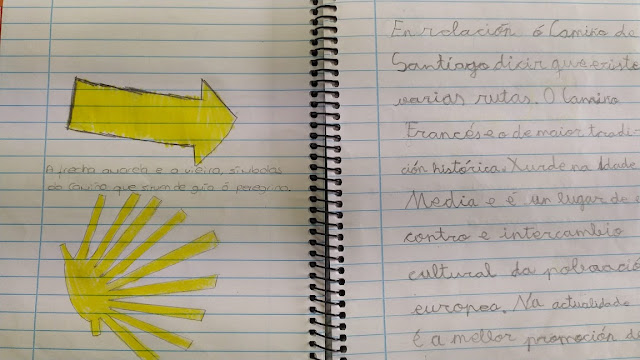 A frecha amarela e a vieira, símbolos
do Camiño que sirven de guía ó peregrino.
En relación ó Camiño de
Santiago dicir que existe
varias rutas. O Camiño
Francés e o de maior tradi
ción histórica. Xurde na Idade
Media e é un lugar de
contro e intercambio
cultural da poboació
europea. Na actualidade
é a mellor promoción d